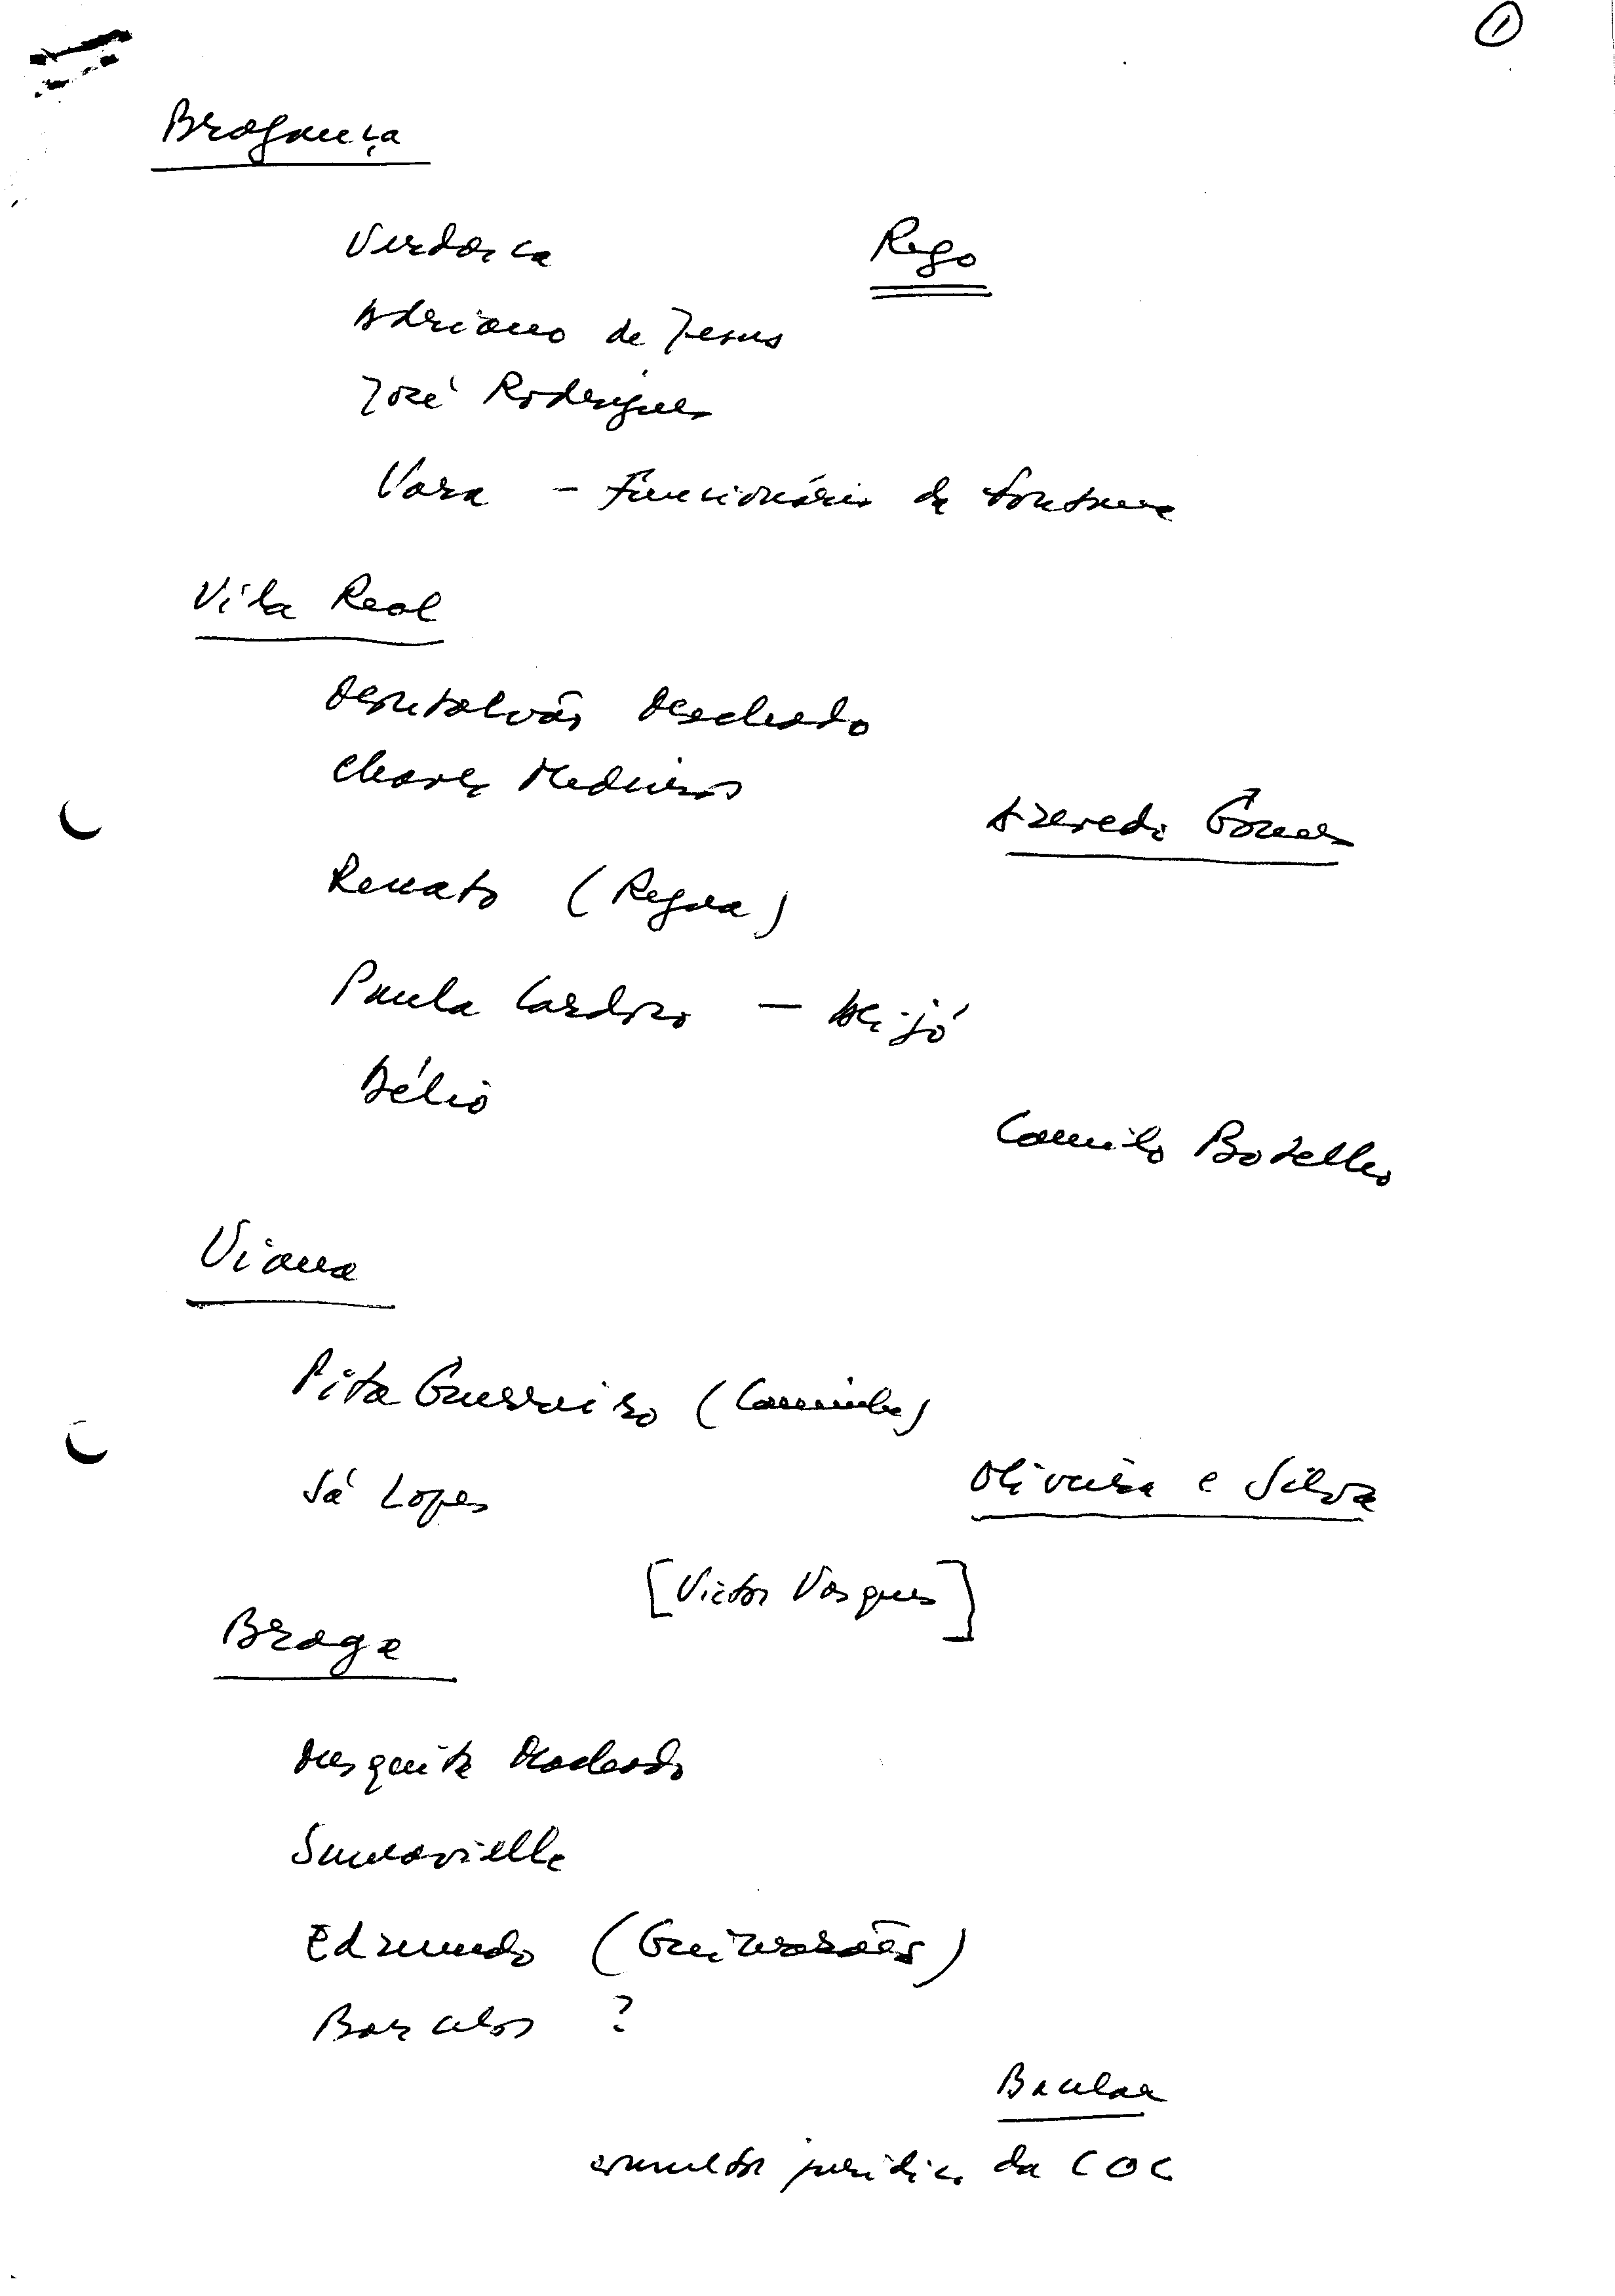 1
Bragança
Verdasca
Rego
Adriano de Jesus
José Rodrigues
Vara - funcionário da
Vila Real
Montalvão Machado
Chaves Medeiros
Azeredo Gomes
Renato (Regua)
Paula Cardoso - Alijó
Délio
Camilo Botelho
Viana
Pita Guerreiro (Caminha)
Sá Lopes
Oliveira e Silva
[Victor Vasques]
Braga
Mesquita Machado
Sumavielle
Edmundo (Guimarães)
Barcelos ?
Bacelar
consultor jurídico da COC